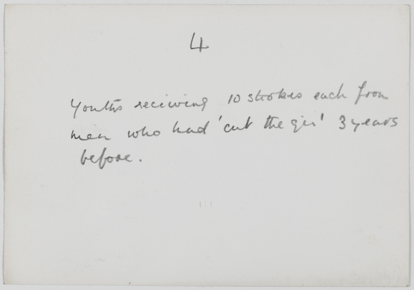 4
Youths reciving 10 strokes each from
men who had 'cut the gisi' 3 years
before.